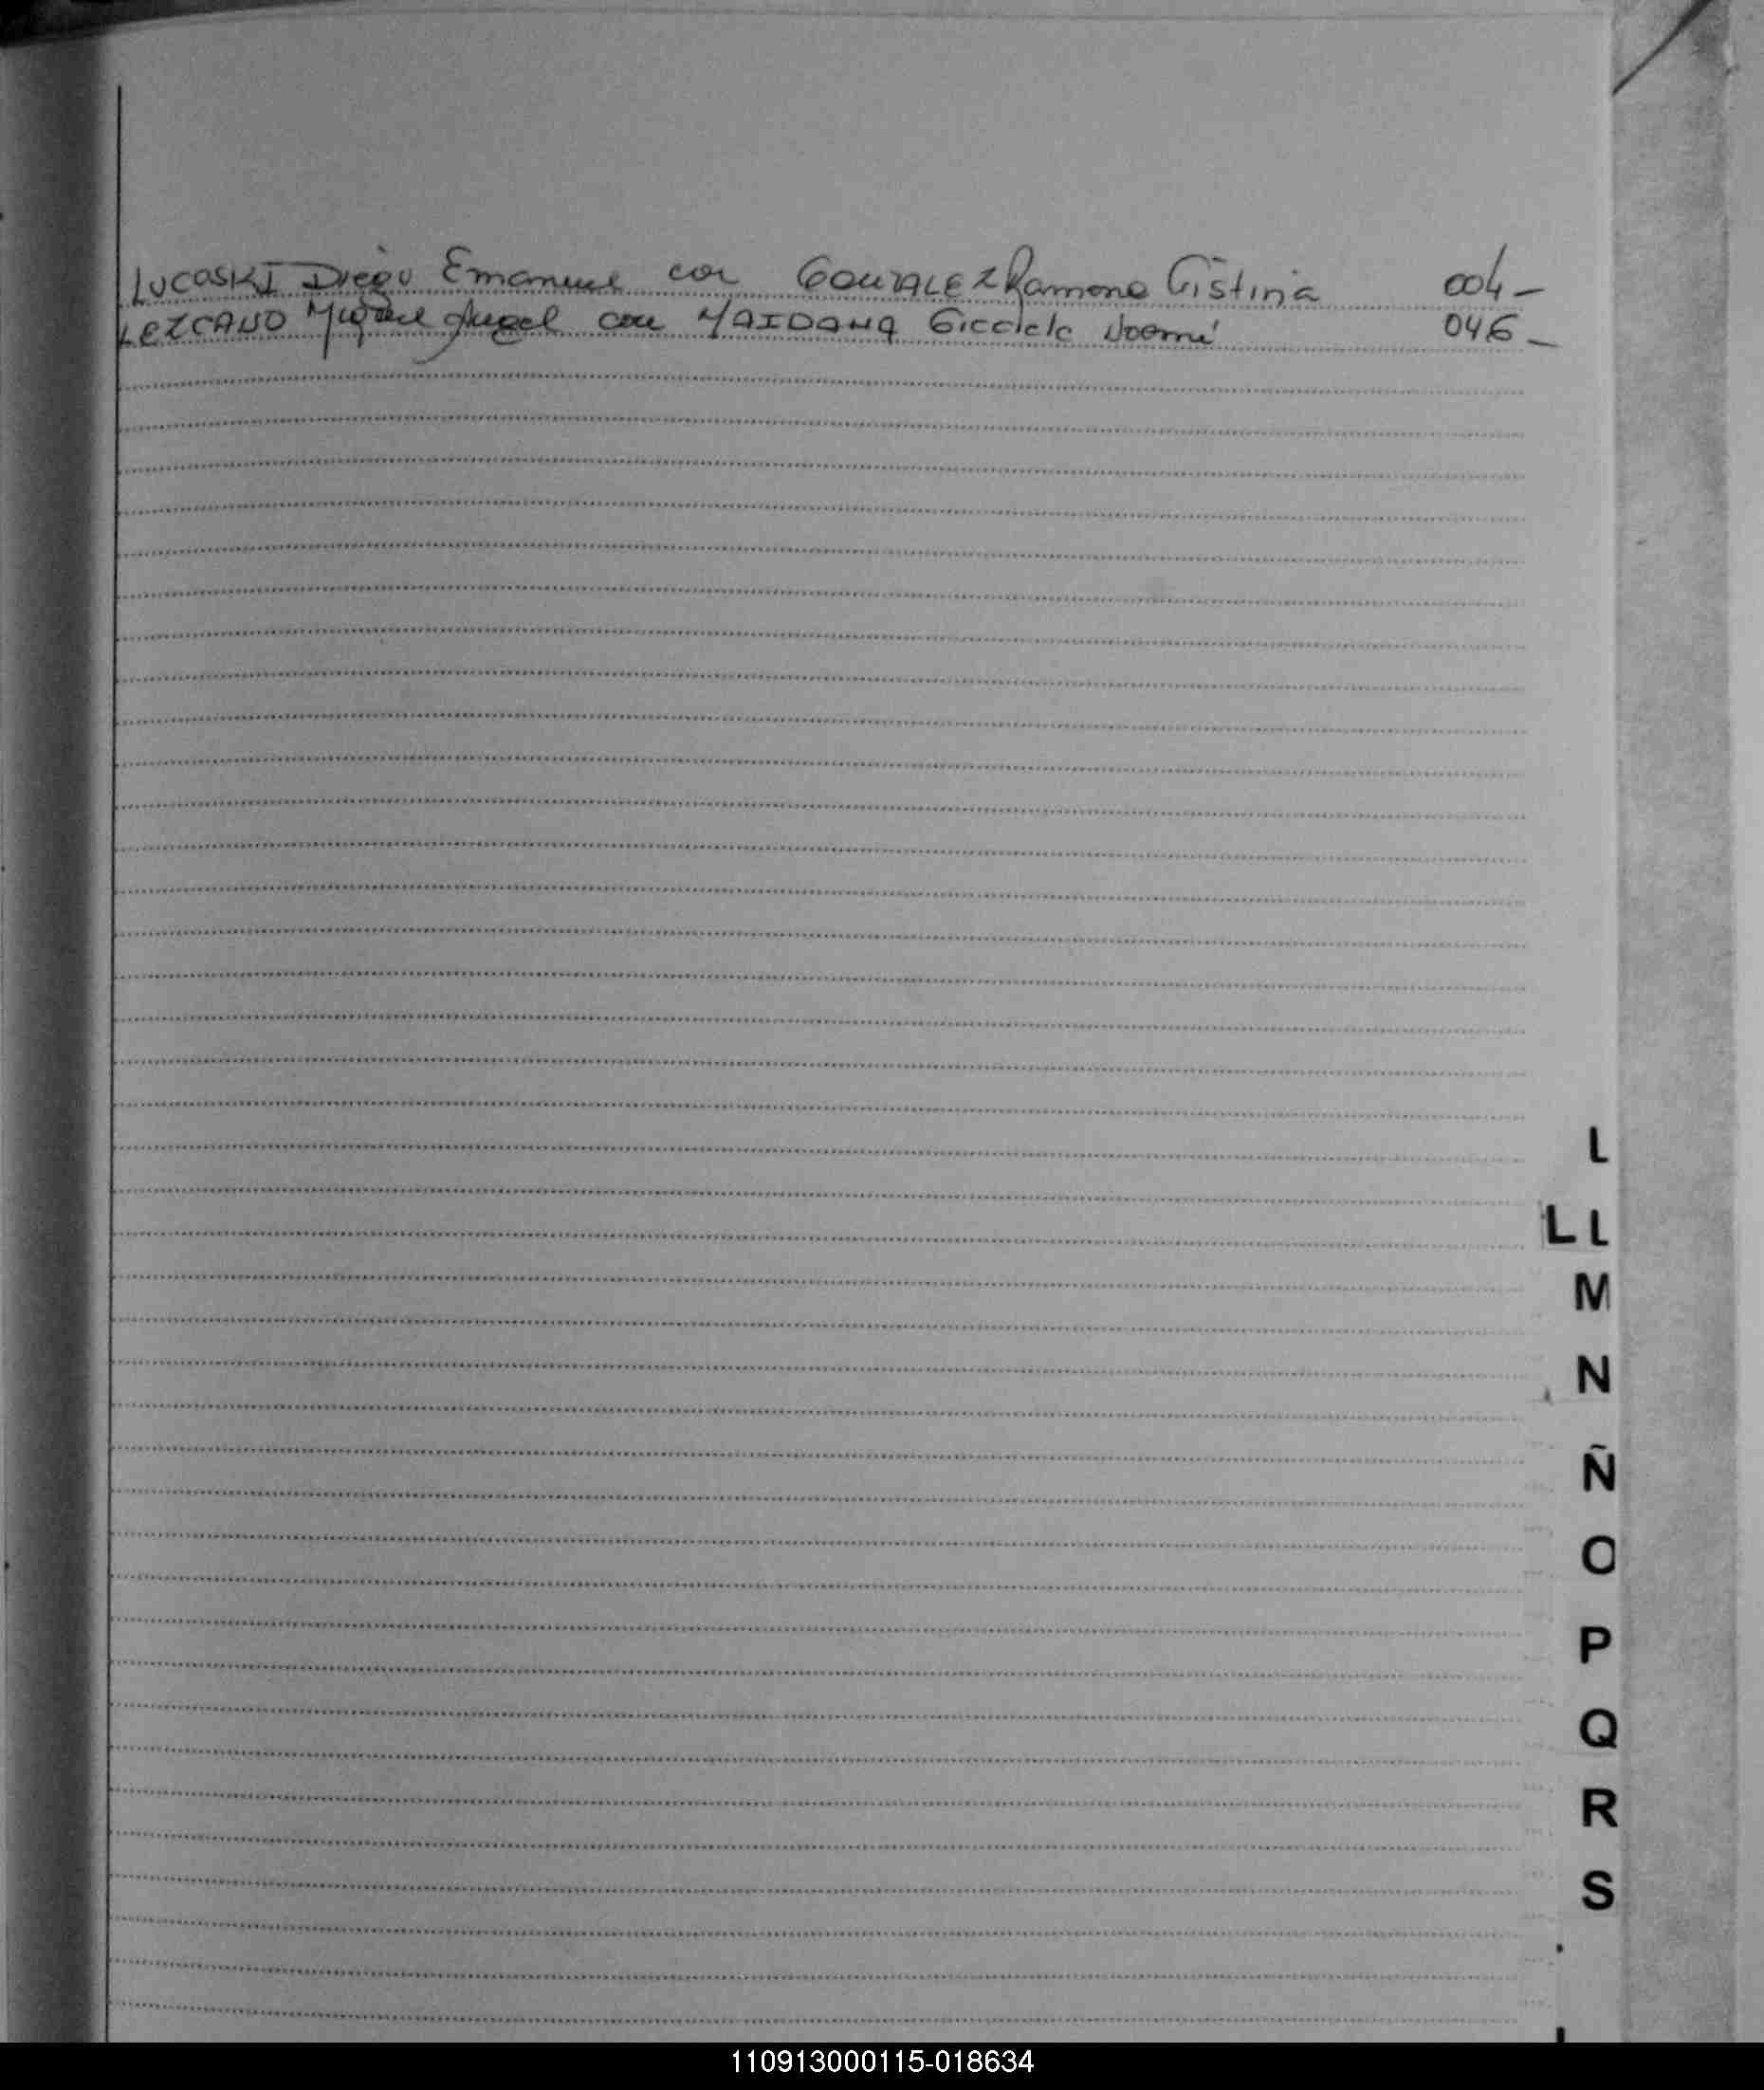 LUCOSKI Diego Emanuel con GONZALEZ Ramona Cistina 004-
LEZCANO Miguel Angel con MAIDANA Noemi 046-
L
LL
M
N
Ñ
O
P
Q
R
S
110913000115-018634